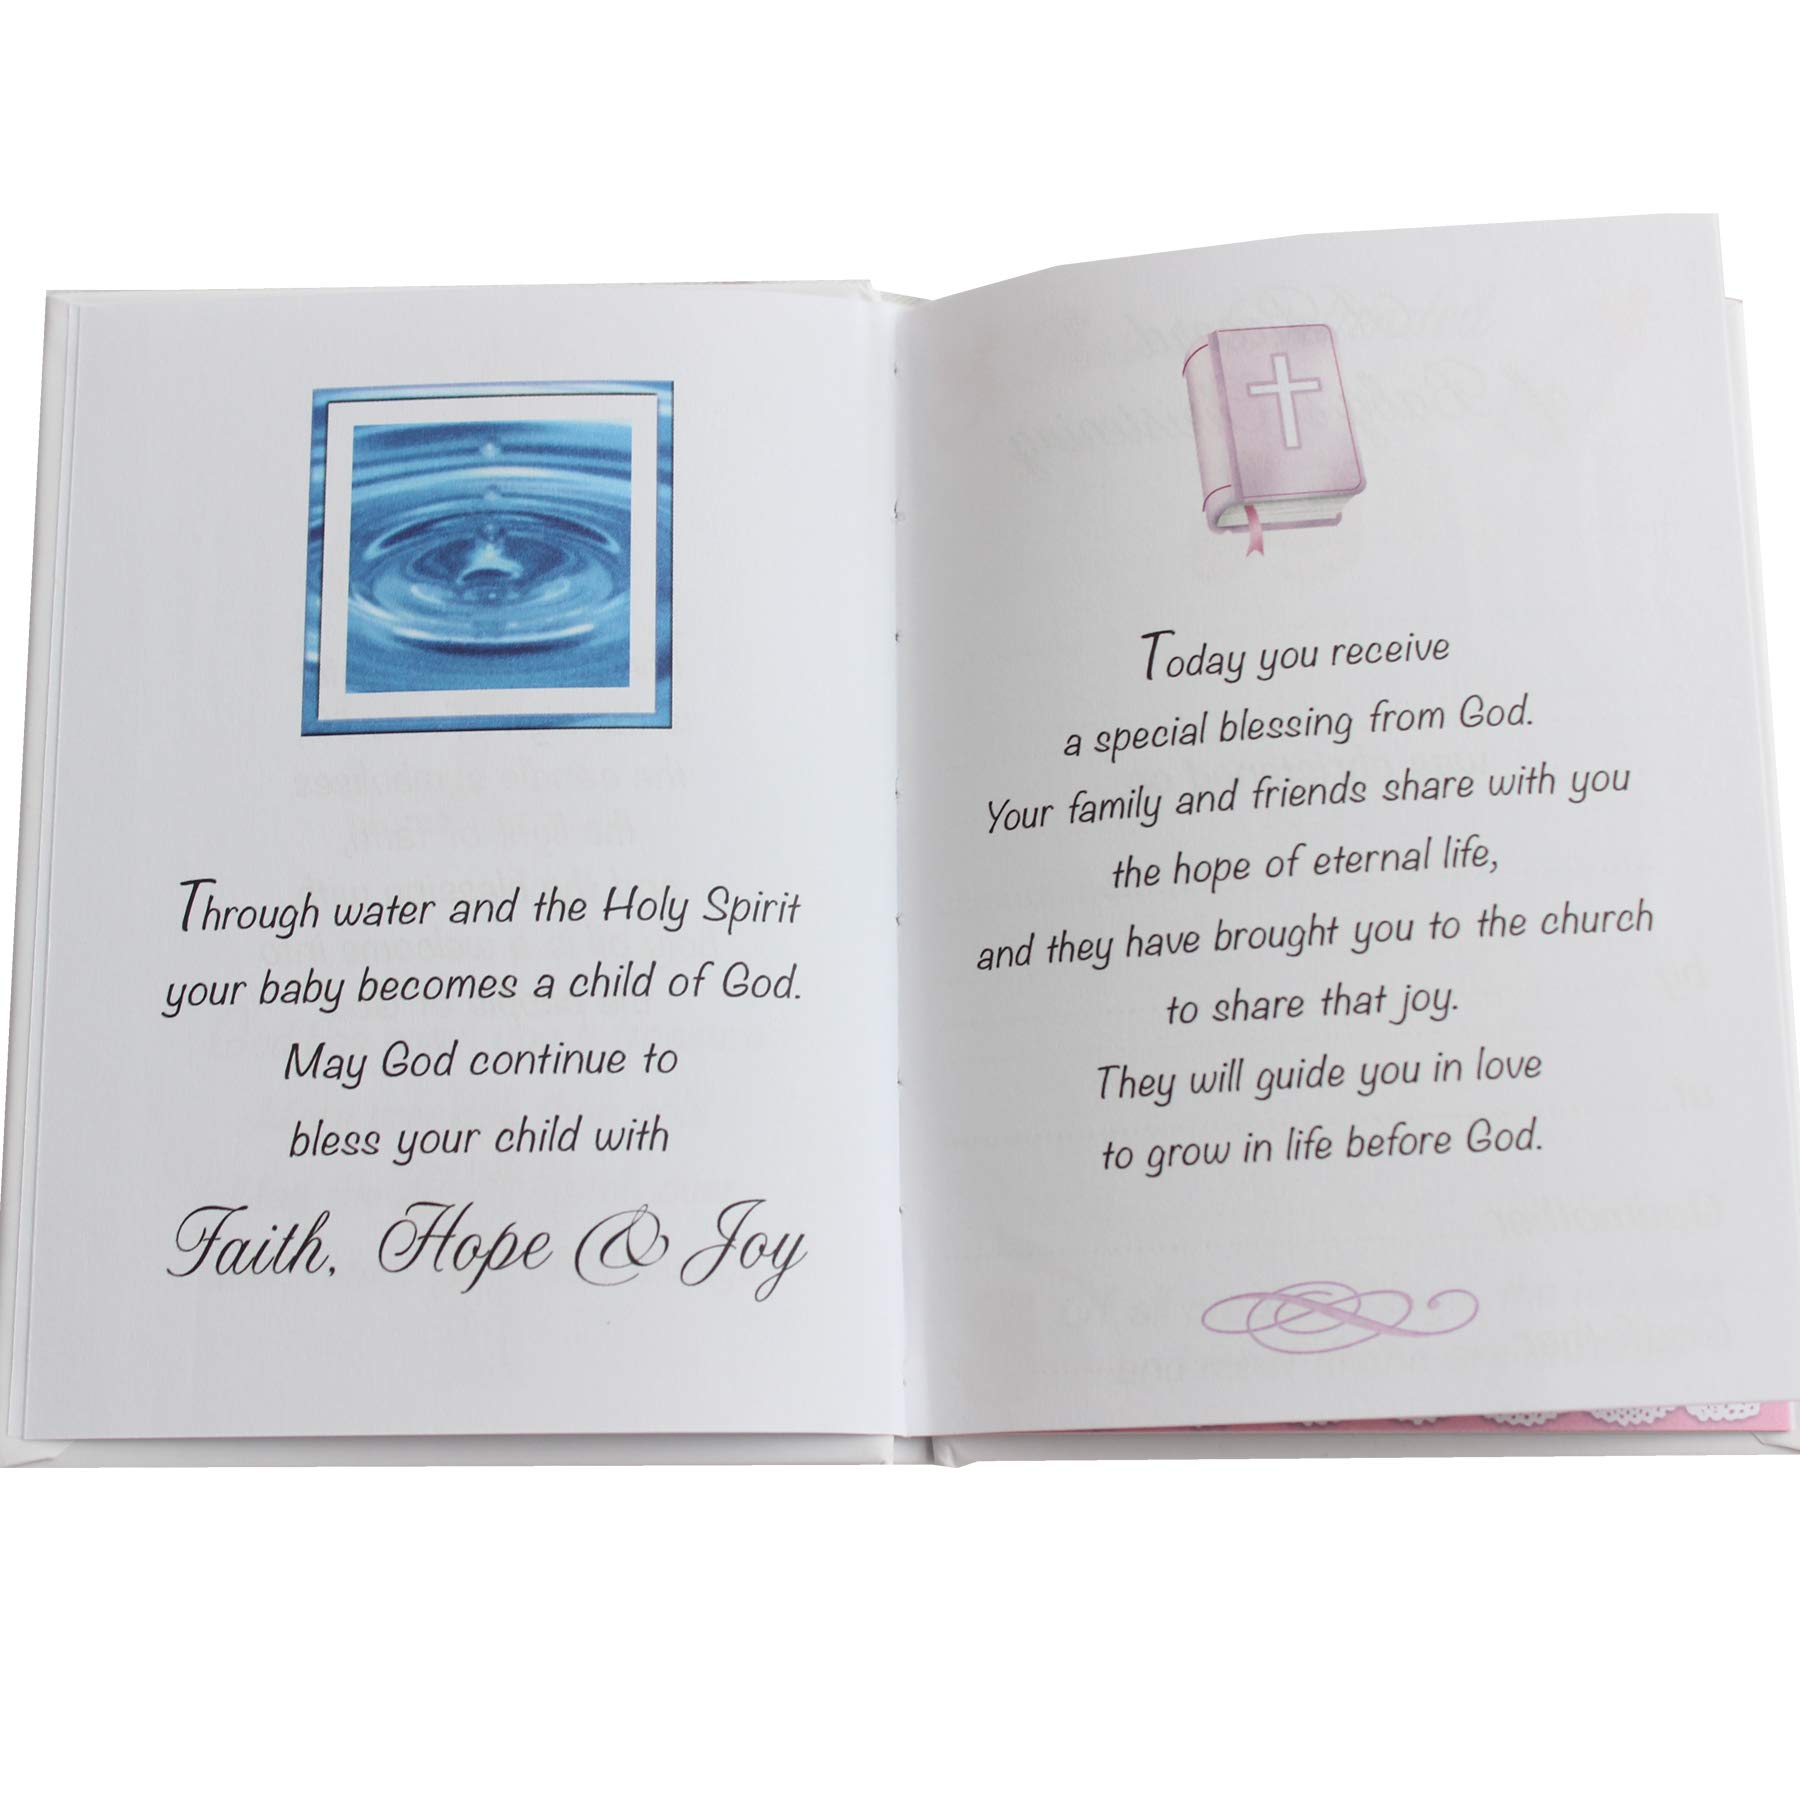 Through water and the Holy Spirit
your baby becomes a child of God.
May God continue to
bless your child with
Faith, Hope & Joy
Today you receive
a special blessing from God.
Your family and friends share with you
the hope of eternal life,
and they have brought you to the church
to share that joy.
They will guide you in love
to grow in life before God.